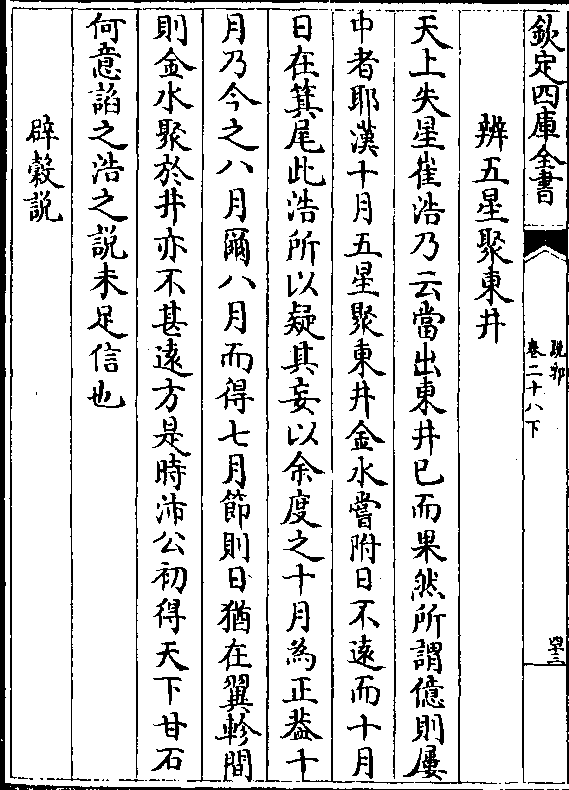 欽定四庫全書
說郛
卷二十八下
四十三
辨五星聚東井
天上失星崔浩乃云當出東井已而果然所謂億則屢
中者耶漢十月五星聚東井金水嘗附日不遠而十月
日在箕尾此浩所以疑其妄以余度之十月為正蓋十
月乃今之八月爾八月而得七月節則日猶在翼軫間
則金水聚於井亦不甚遠方是時沛公初得天下甘石
何意諂之浩之說未足信也
辟穀說